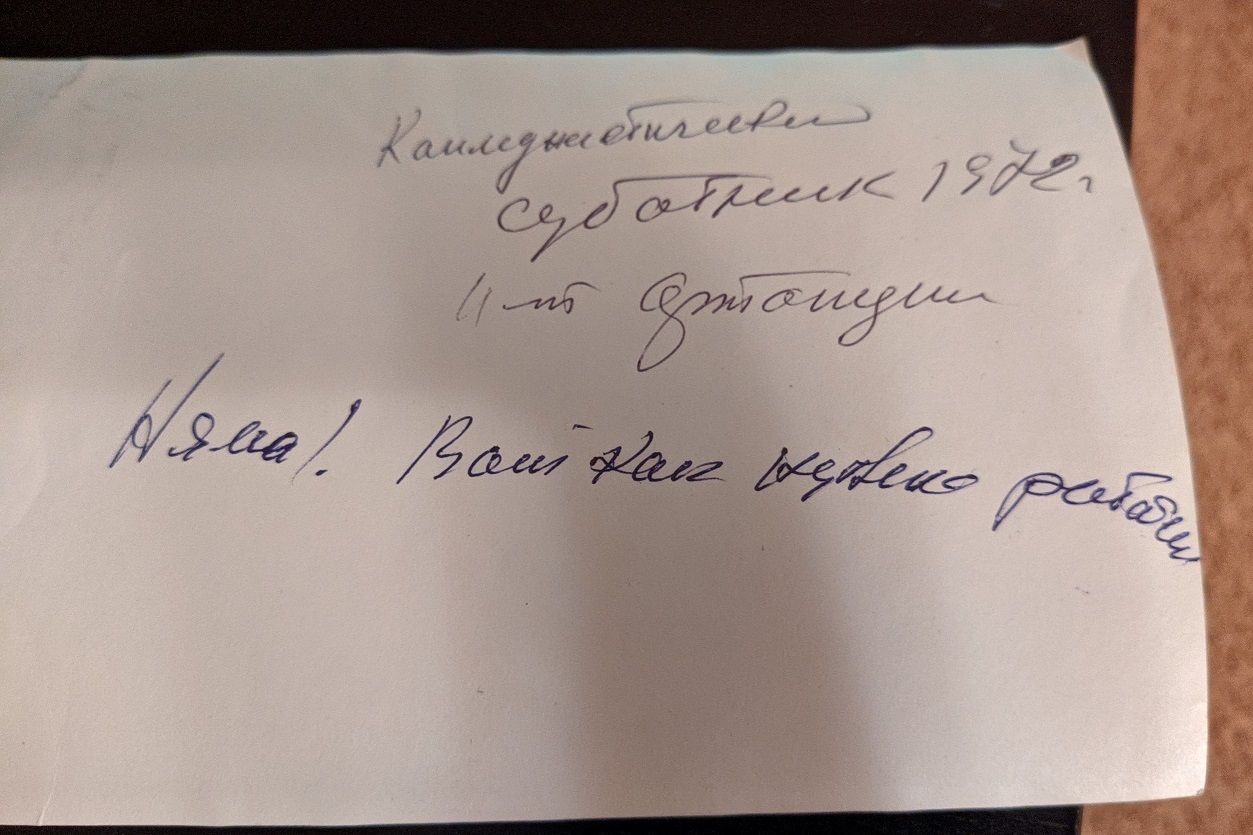 Коммунистический
суботник 1972г
И-т Ортопедии
Няма! Вот как нужно работать